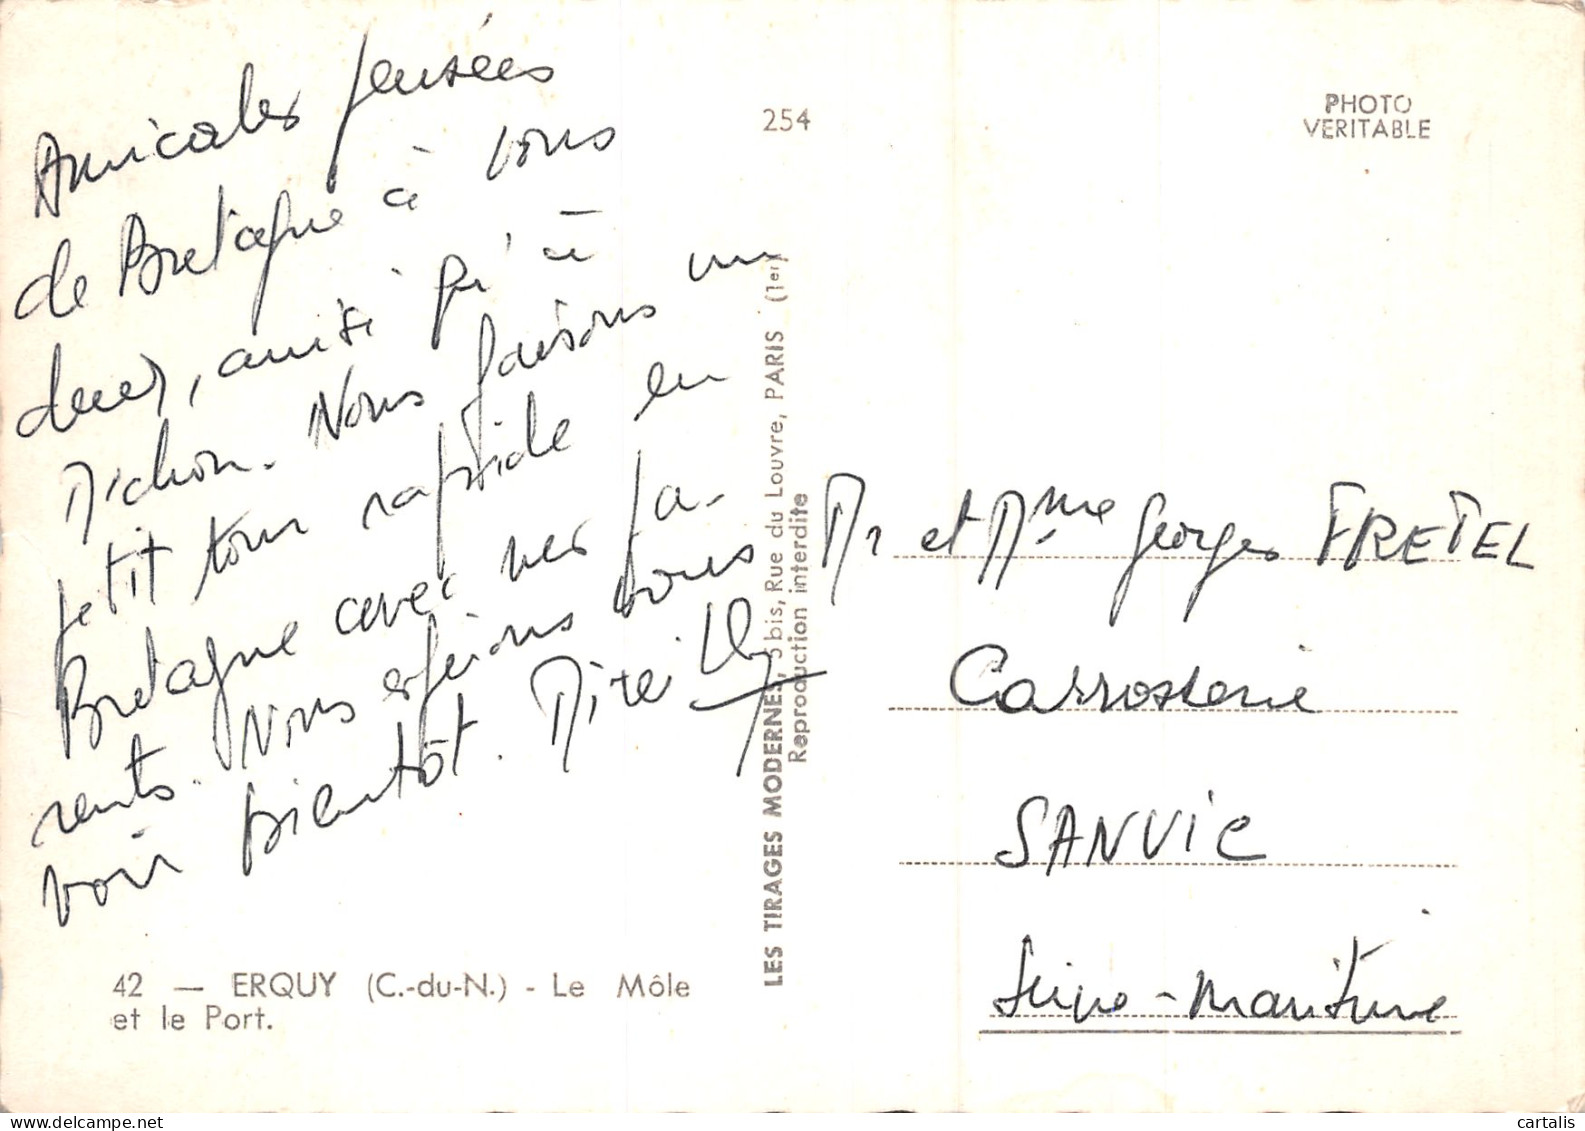 Amicales pensées
de Bretagne à vous
deux, amitié qu' à
Michou. Nous faisons un
petit tour rapide en
Bretagne avec mes pa-
rents. Nous espérons vous
voir bientôt. Mireille
42 — ERQUY (C.-du-N.) - Le Môle
et le Port.
254
LES TIRAGES MODERNES, 5 bis, Rue du Louvre, PARIS (1er)
Reproduction interdite
PHOTO
VERITABLE
Mr et Mme Georges FRETEL
Carrosserie
SANVIC
Seine-Maritime
cartalis